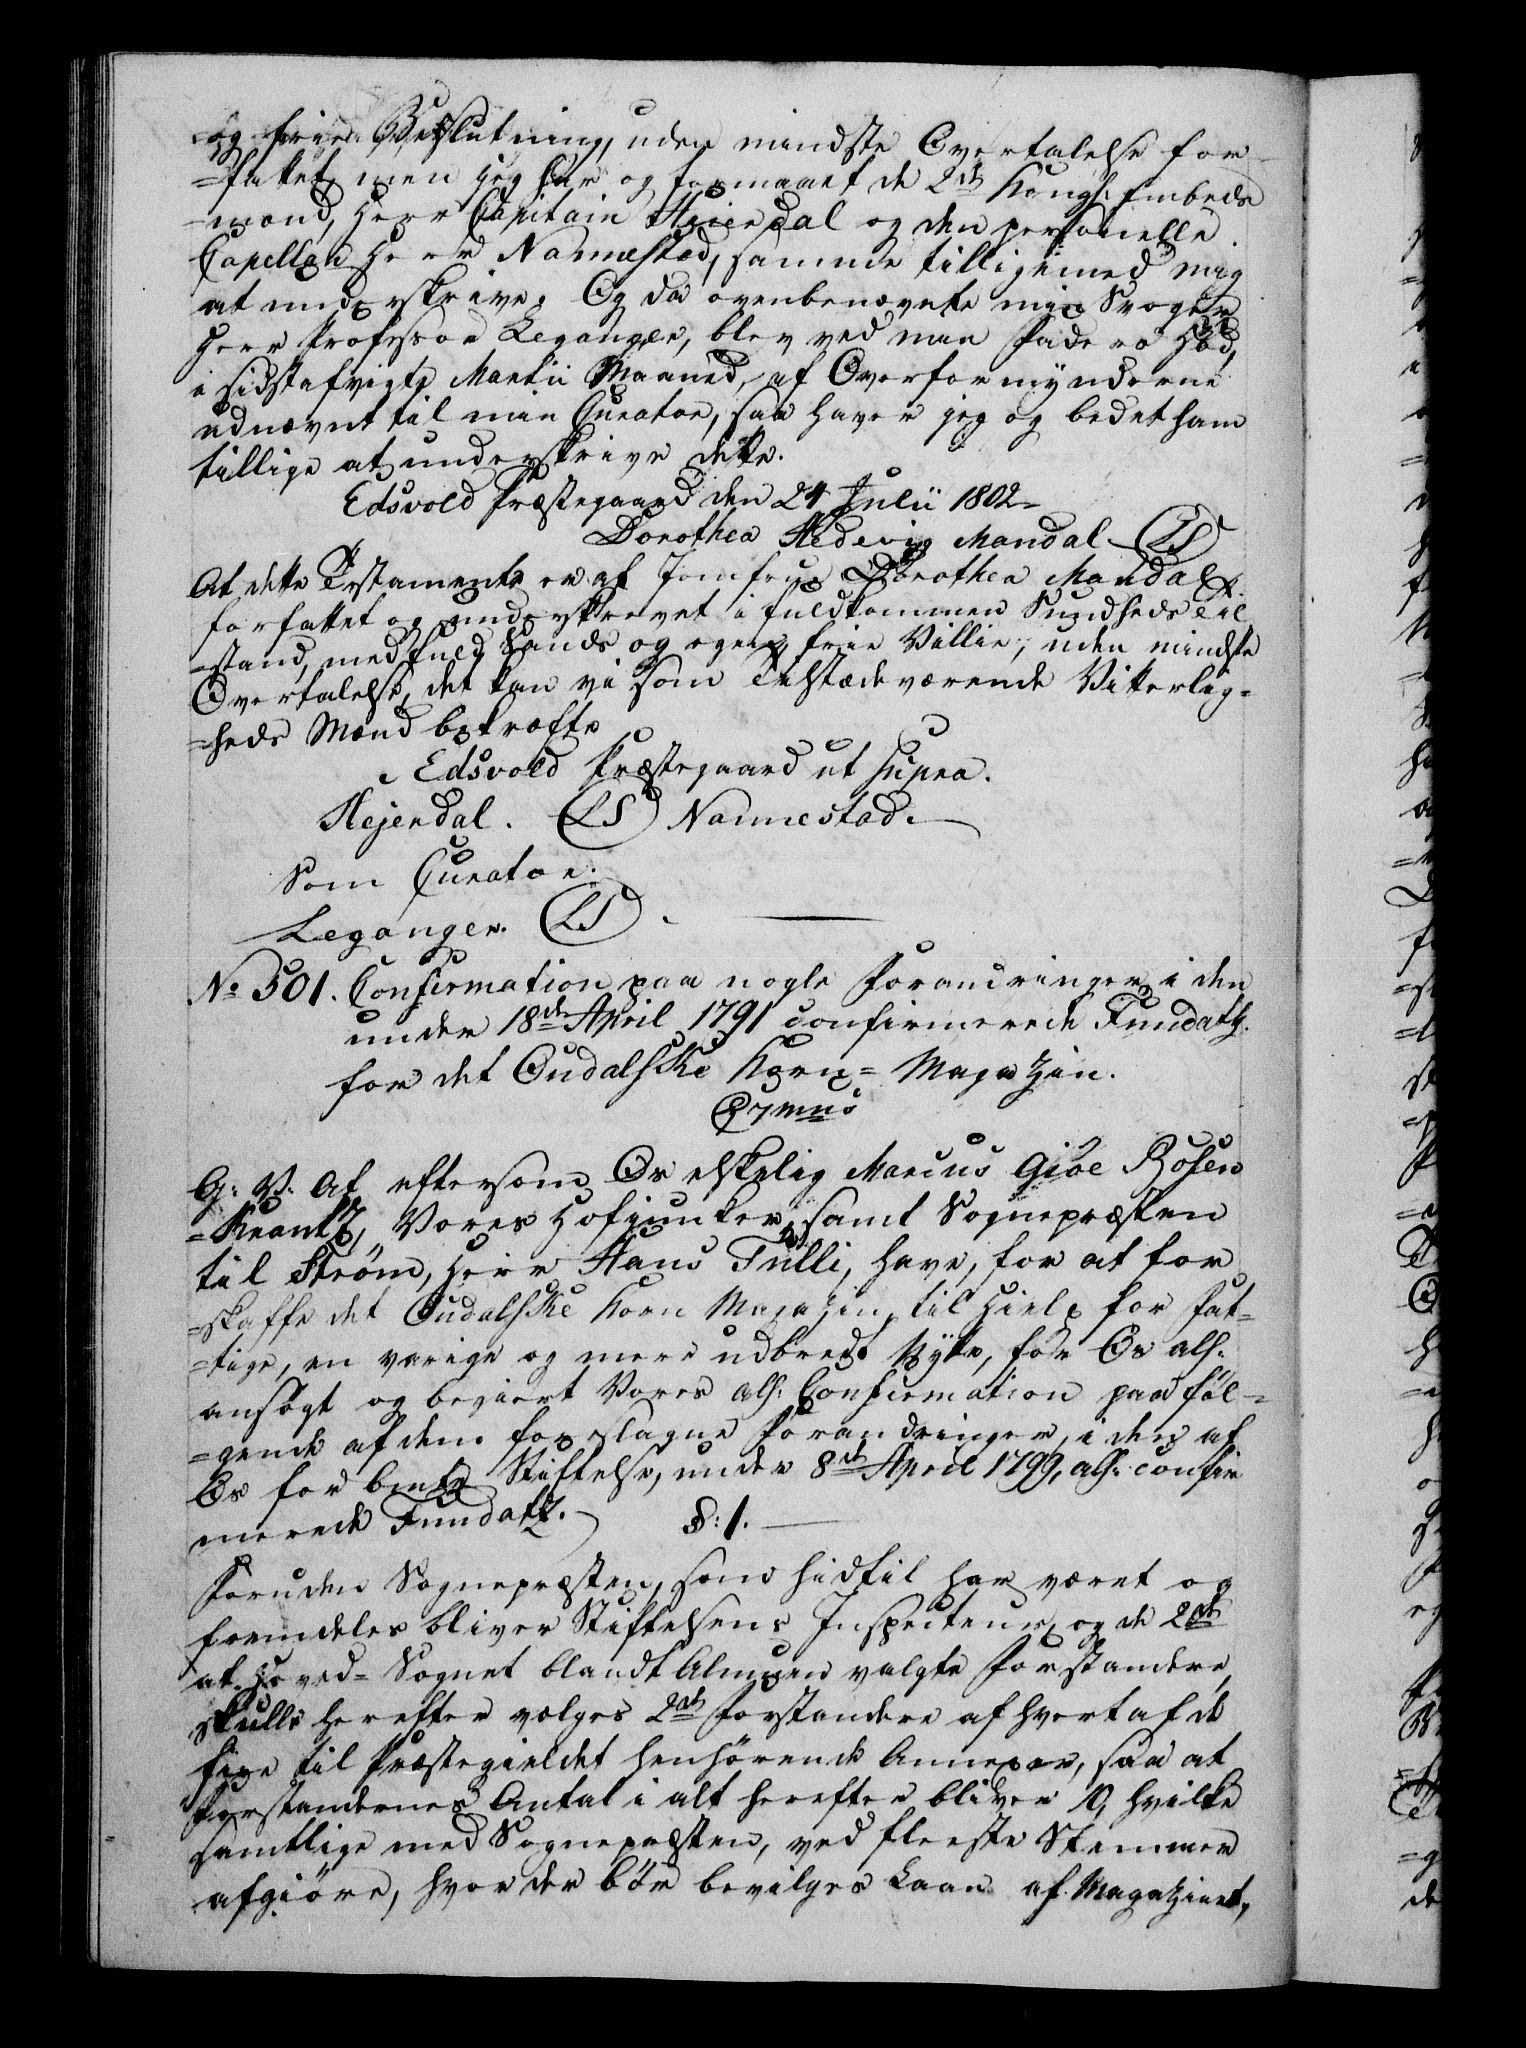 og friee Beslutning, uden mindste Overtalelse for-
=fattet, men jeg har og formaaet de 2de Kongl: Embeds
=mænd, Herr Capitain Heierdal og den personelle
Capellan Herr Nannestad, samme tilligemed mig
at underskrive. Og da ovenbenævnte min Svoger
Herr Professor Leganger, blev ved min Faders Død,
i sidstafvigte Martii Maaned, af Overformynderne
udnævnt til min Curator, saa haver jeg og bedet ham
tillige at underskrive dette.
Edsvold Præstegaard den 24 Julii 1802.
Dorothea Hedevig Mandal (LS)
At dette Testamente er af Jomfrue Dorothea Mandal
forfattet og underskrevet i fuldkommen Sundheds Til
=stand, med fuld Sands og egen frie Villie, uden mindste
Overtalelse, det kan vi som Tilstædeværende Vitterlig=
=heds Mænd bekræfte
Edsvold Præstegaard ut supra.
Hejerdal. (LS) Nannestad.
Som Curator.
Leganger. (LS).
No 501. Confirmation paa nogle Forandringer i den
under 18de April 1791 confirmerede Fundatz.
for det Oudalske Korn= Magazin.
G: V: At eftersom Os elskelig Marcus Giøe Rosen
=Krantz, Vores Hofjunker, samt Sognepræsten
til Strøm, Herr Hans Tulli, have, for at for
=skaffe det Oudalske Korn Magazin, til Hielp for Fat=
=tige, en varige og mere udbredt Nytte, for Os alls:
ansøgt og begiert Vores alls: Confirmation paa føl=
=gende af dem foreslagne Forandringer, i den af
Os for bemte Stiftelse, under 8de April 1799, alls: confir
merede Fundatz. §: 1.
Foruden Sognepræsten, som hidtil har været og
fremdeles bliver Stiftelsens Inspecteur, og de 2de
at Hoved= Sognet blandt Almuen valgte Forstandere,
skulle herefter vælges 2de Forstandere af hvert af de
fire til Præstegieldet henhørende Annexer, saa at
Forstandernes Antal i alt herefter bliver 10, hvilke
samtlige med Sognepræsten, ved fleeste Stemmer
afgiøre, hvor der bør bevilges Laan af Magazinet,